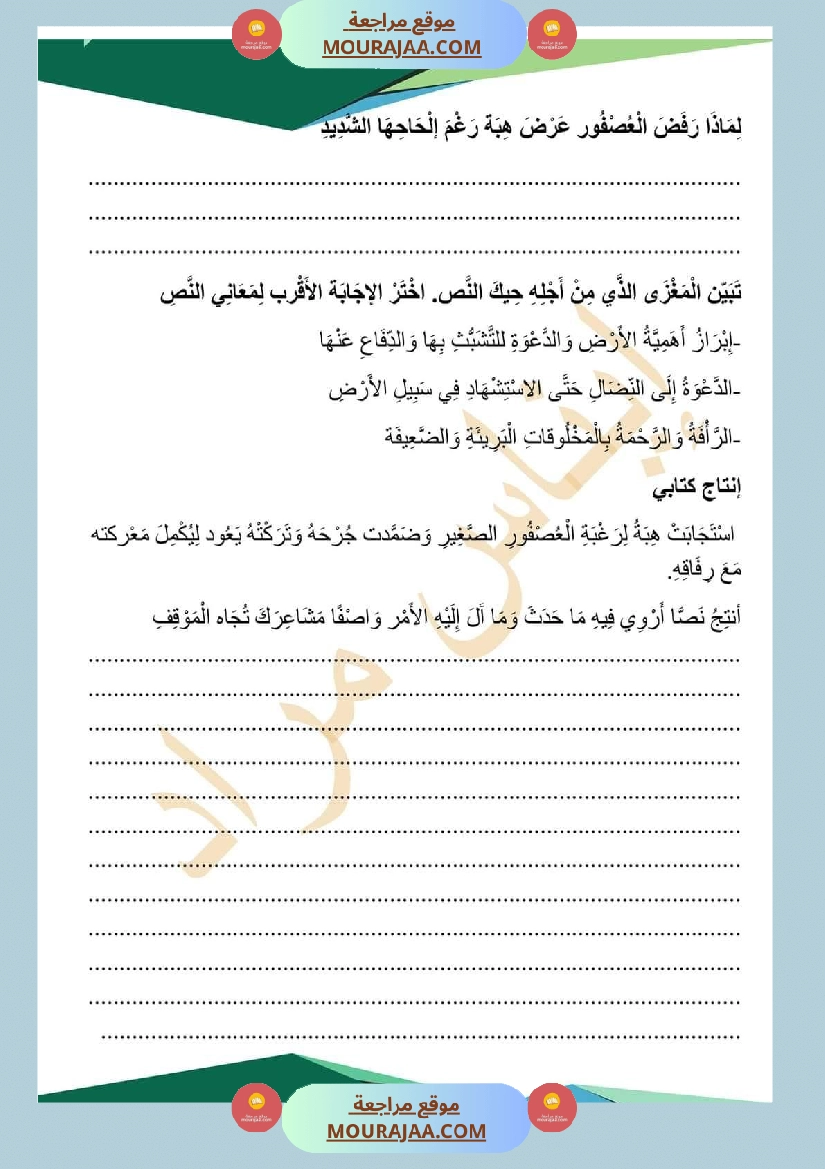 موقع مراجعة
MOURAJAA.COM
لِمَاذَا رَفَضَ الْعُصْفُور عَرْضَ هِبَة رَغْمَ إلْحَاحِهَا الشَّدِيدِ
تَبَيّن الْمَغْزَى الذَّي مِنْ أَجْلِهِ حِيكَ النَّص. اخْتَرْ الإجَابَة الأَقْرب لِمَعَانِي النَّصِ
-إِبْرَازُ أَهَمِيَّةُ الأَرْضِ وَالدَّعْوَةِ للتَّشَبُّثِ بِهَا وَالدِّفَاعِ عَنْهَا
-الدَّعْوَةُ إِلَى النِّضَالِ حَتَّى الاسْتِشْهَادِ فِي سَبِيلِ الأَرْضِ
-الرَّأْفَةُ وَالرَّحْمَةُ بِالْمَخْلُوقَاتِ الْبَرِيئَةِ وَالضَّعِيفَة
إنتاج كتابي
اسْتَجَابَتْ هِبَةُ لِرَغْبَةِ الْعُصْفُورِ الصَّغِيرِ وَضَمَّدت جُرْحَهُ وَتَرَكْتْهُ يَعُود لِيُكْمِلَ مَعْركته
مَعَ رِفَاقِهِ.
أنتِجُ نَصَّا أَرْوِي فِيهِ مَا حَدَثَ وَمَا آَلَ إِلَيْهِ الأَمْر وَاصْفًا مَشَاعِرَكَ تُجَاه الْمَوْقِفِ
إيناس مراد
موقع مراجعة
MOURAJAA.COM